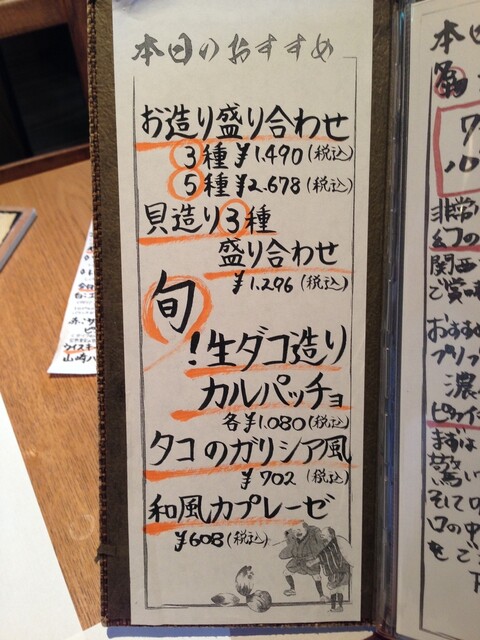 本日のおすすめ
お造り盛り合わせ
3種¥1.490(税込)
5種¥2.678(税込)
貝造り3種
盛り合わせ
¥1.296(税込)
旬!生ダコ造り
カルパッチョ
各¥1.080(税込)
タコのガリシア風
¥702(税込)
和風カプレーゼ
¥608(税込)
幻の
関西
ご賞味
おすすめ
プリプ
濃
まずは
驚い
そして
口の中
をご
ウイスキー
山崎ハ